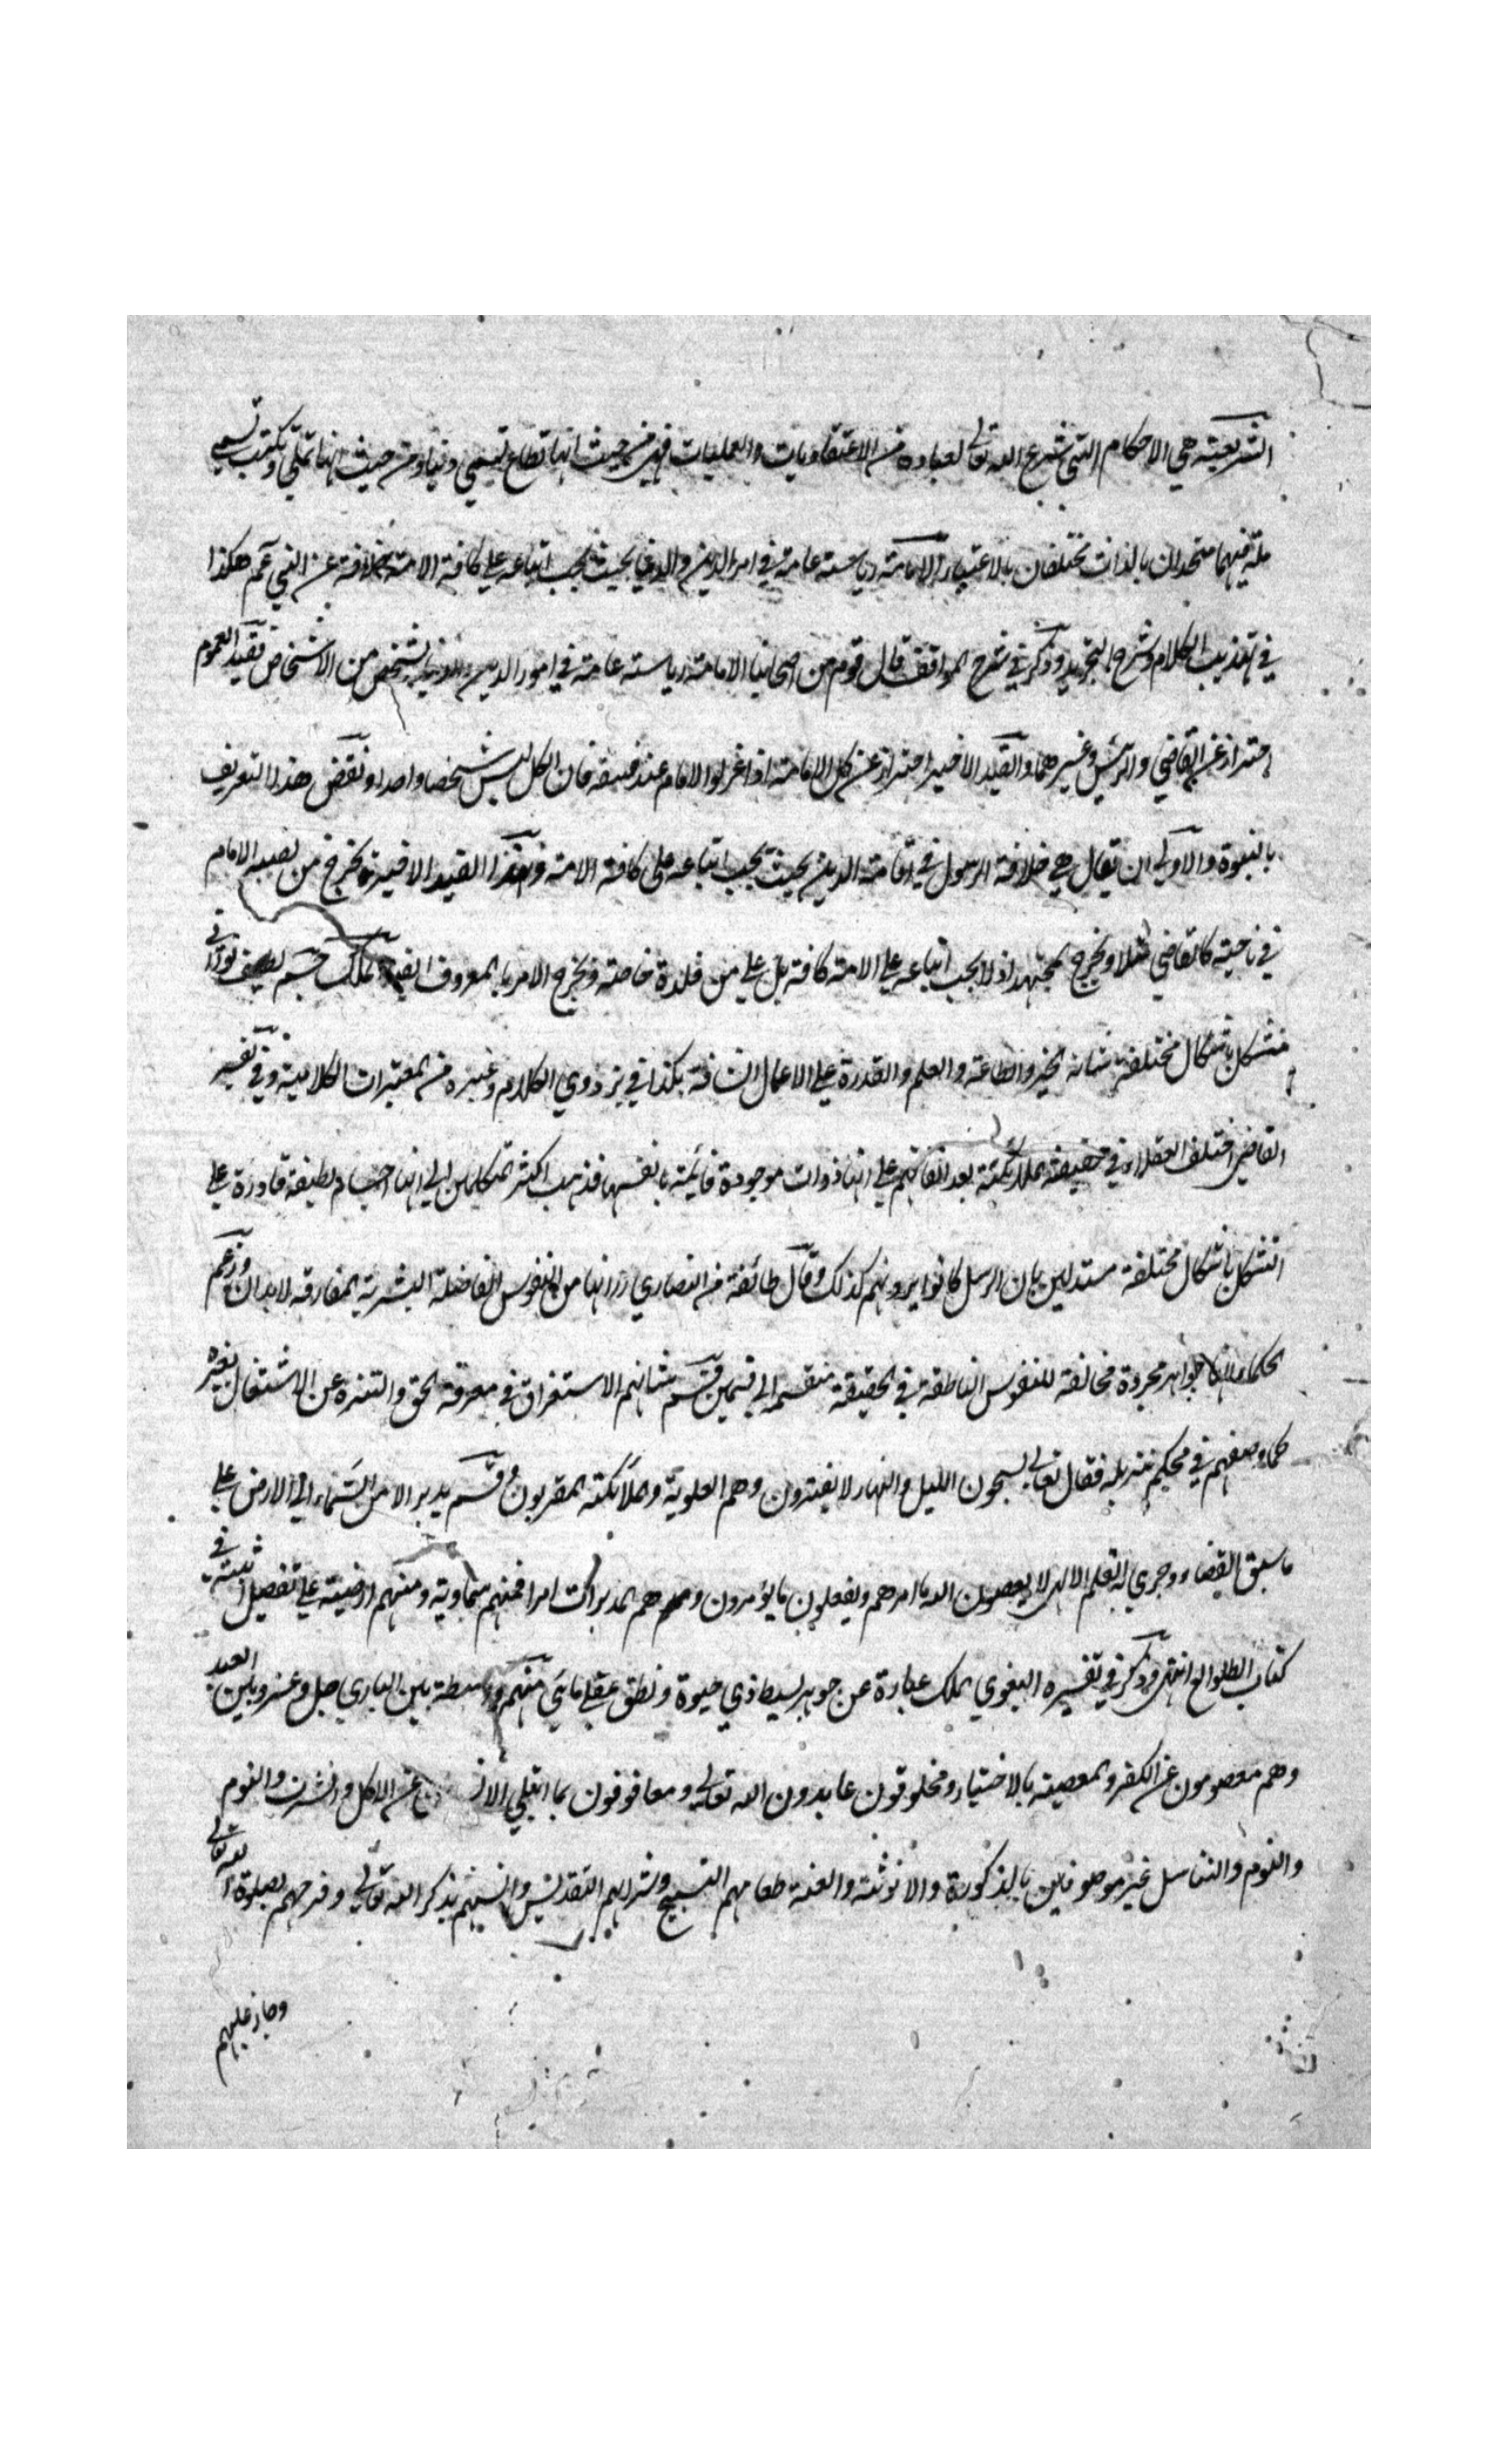 الشريعة هي الاحكام التي شرع الله تعالى لعباده من الاعتقاديات والعمليات فهي من حيث انها تطاع تسمى دينا ومن حيث انها تملى وتكتب تسمى
ملة فيهما متحدان بالذات مختلفان بالاعتبار الامامة رياسة عامة في امر الدين والدنيا بحيث يجب اتباعه على كافة الامة خلافة عن النبي عم هكذا
في تهذيب الكلام وشرح التجريد وذكر في شرح المواقف قال قوم من اصحابنا الامامة رياسة عامة في امور الدين والدنيا لشخص من الاشخاص فقيد العموم
احتراز عن القاضي والرئيس وغيرهما والقيد الاخير احتراز عن كل الامامة اذا عزلوا الامام عند فسقه فان الكل ليس شخصا واحدا ونقض هذا التعريف
بالنبوة والاولى ان يقال هي خلافة الرسول في اقامة الدين بحيث يجب اتباعه على كافة الامة وبهذا القيد الاخير يخرج من نصبه الامام
في ناحيته كالقاضي مثلا ويخرج المجتهد اذ لا يجب اتباعه على الامة كافة بل على من قلده خاصة ويخرج الامر بالمعروف ايضا الملك جسم لطيف نوراني
متشكل باشكال مختلفة شانه الخير والطاعة والعلم والقدرة على الاعمال الشاقة هكذا في بزدوي الكلام وغيره من المعتبرات الكلامية وفي تفسير
القاضي اختلف العقلاء في حقيقة الملائكة بعد اتفاقهم على انها ذوات موجودة قائمة بانفسها فذهب اكثر المتكلمين الى انها اجسام لطيفة قادرة على
التشكل باشكال مختلفة مستدلين بان الرسل كانوا يرونهم كذلك وقال طائفة من النصارى انها من النفوس الفاضلة البشرية المفارقة لابدان وزعم
الحكماء انها جواهر مجردة مخالفة للنفوس الناطقة في الحقيقة منقسمة الى قسمين قسم شانهم الاستغراق في معرفة الحق والتنزه عن الاشتغال بغيره
كما وصفهم في محكم تنزيله فقال تعالى يسبحون الليل والنهار لا يفترون وهم العلوية والملائكة المقربون وقسم يدبر الامر من السماء الى الارض على
ما سبق القضاء وجرى به القلم الالهي لا يعصون الله ما امرهم ويفعلون ما يؤمرون وهم المدبرات امرا فمنهم سماوية ومنهم ارضية على تفصيل اثبته في
كتاب الطوالع انتهى وذكر في تفسيره البغوي الملك عبارة عن جوهر بسيط ذي حيوة ونطق عقلي مائي منهم واسطة بين الباري جل وعز وبين العبد
وهم معصومون عن الكفر والمعصية بالاختيار ومخلوقون عابدون الله تعالى ومعافوفون بما ابتلي عن الاكل والشرب والنوم
واللوم والتناسل غير موصوفين بالذكورة والانوثة والعنة طعامهم التسبيح وشرابهم التقديس وانسهم بذكر الله تعالى وفرحهم بصلوة الله تعالى
وجاز عليهم